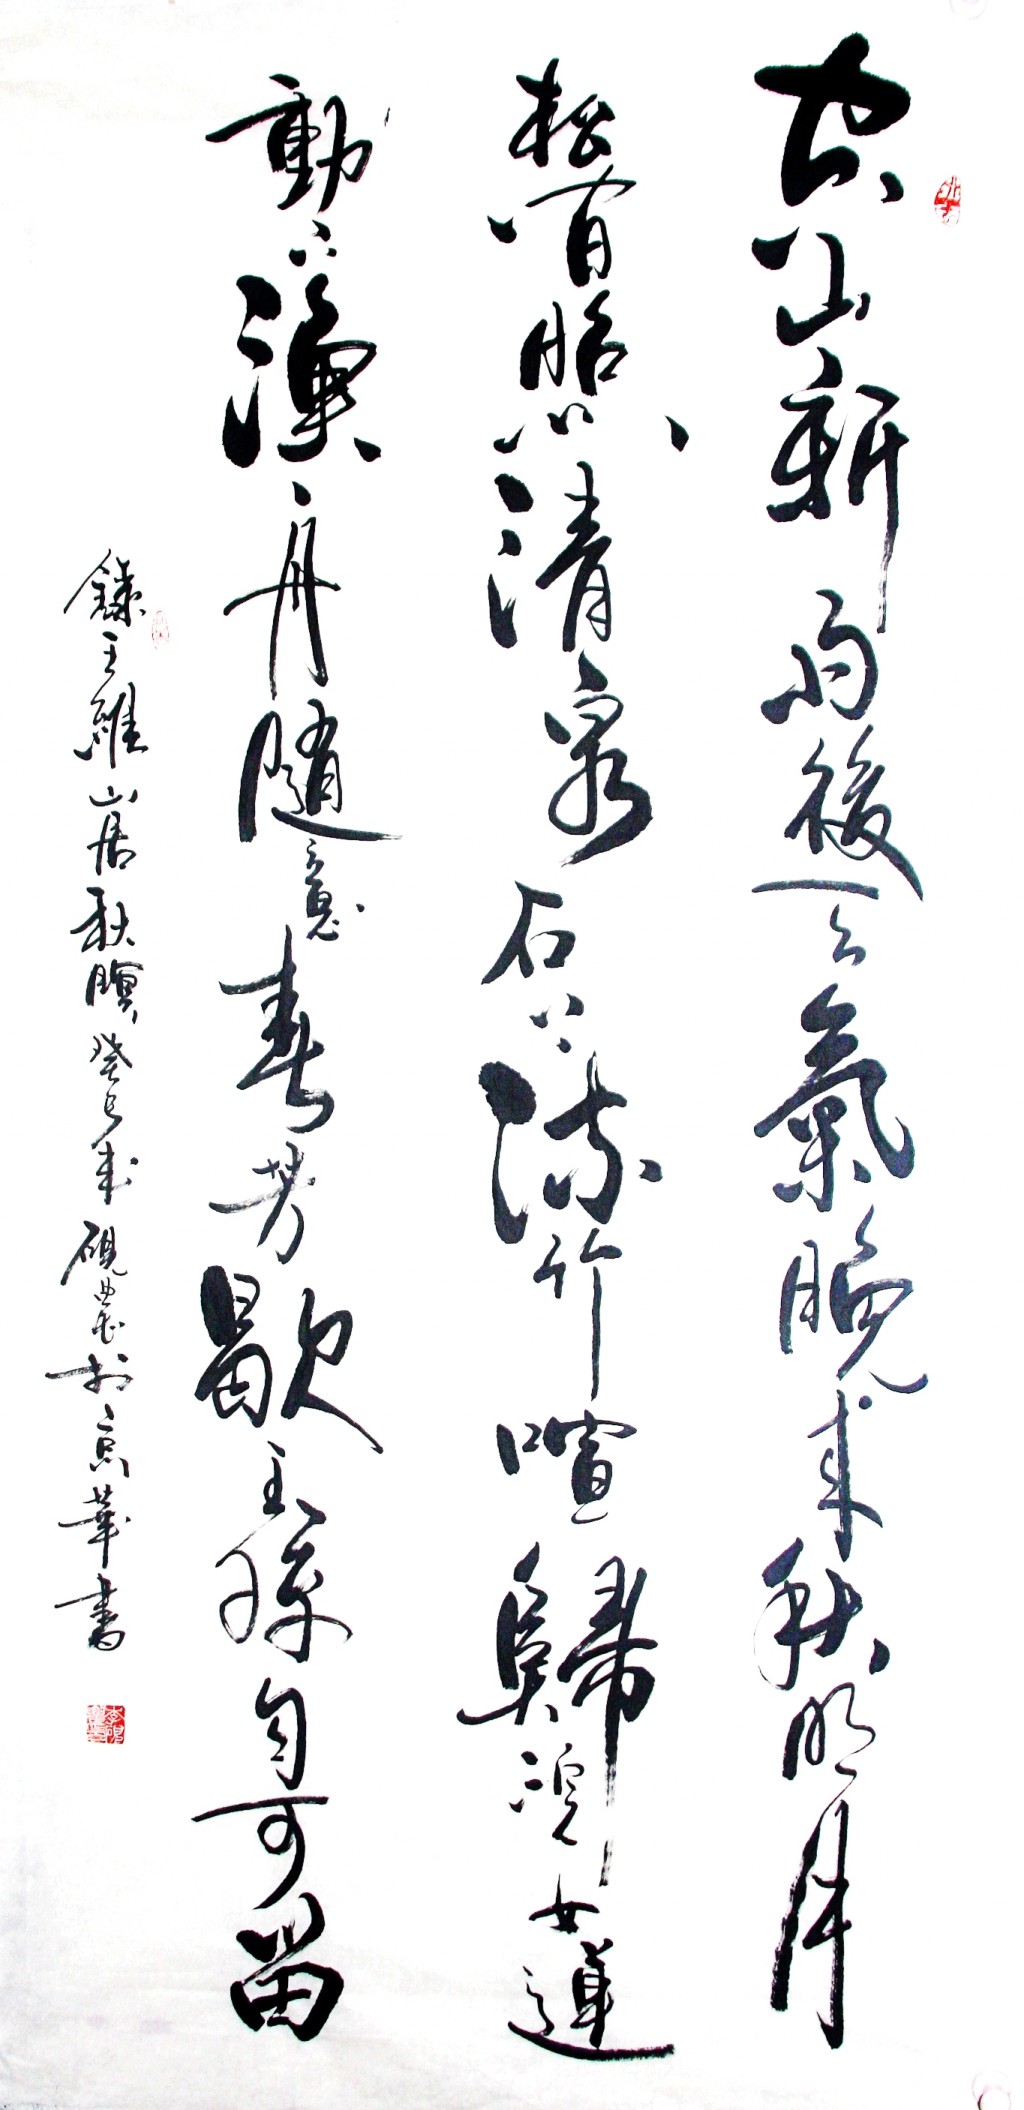 空山新雨後天氣晚來秋明月
松間照清泉石上流竹喧歸浣女蓮
動下漁舟隨意春芳歇王孫自可留
錄王維山居秋暝癸巳年硯農於京華書